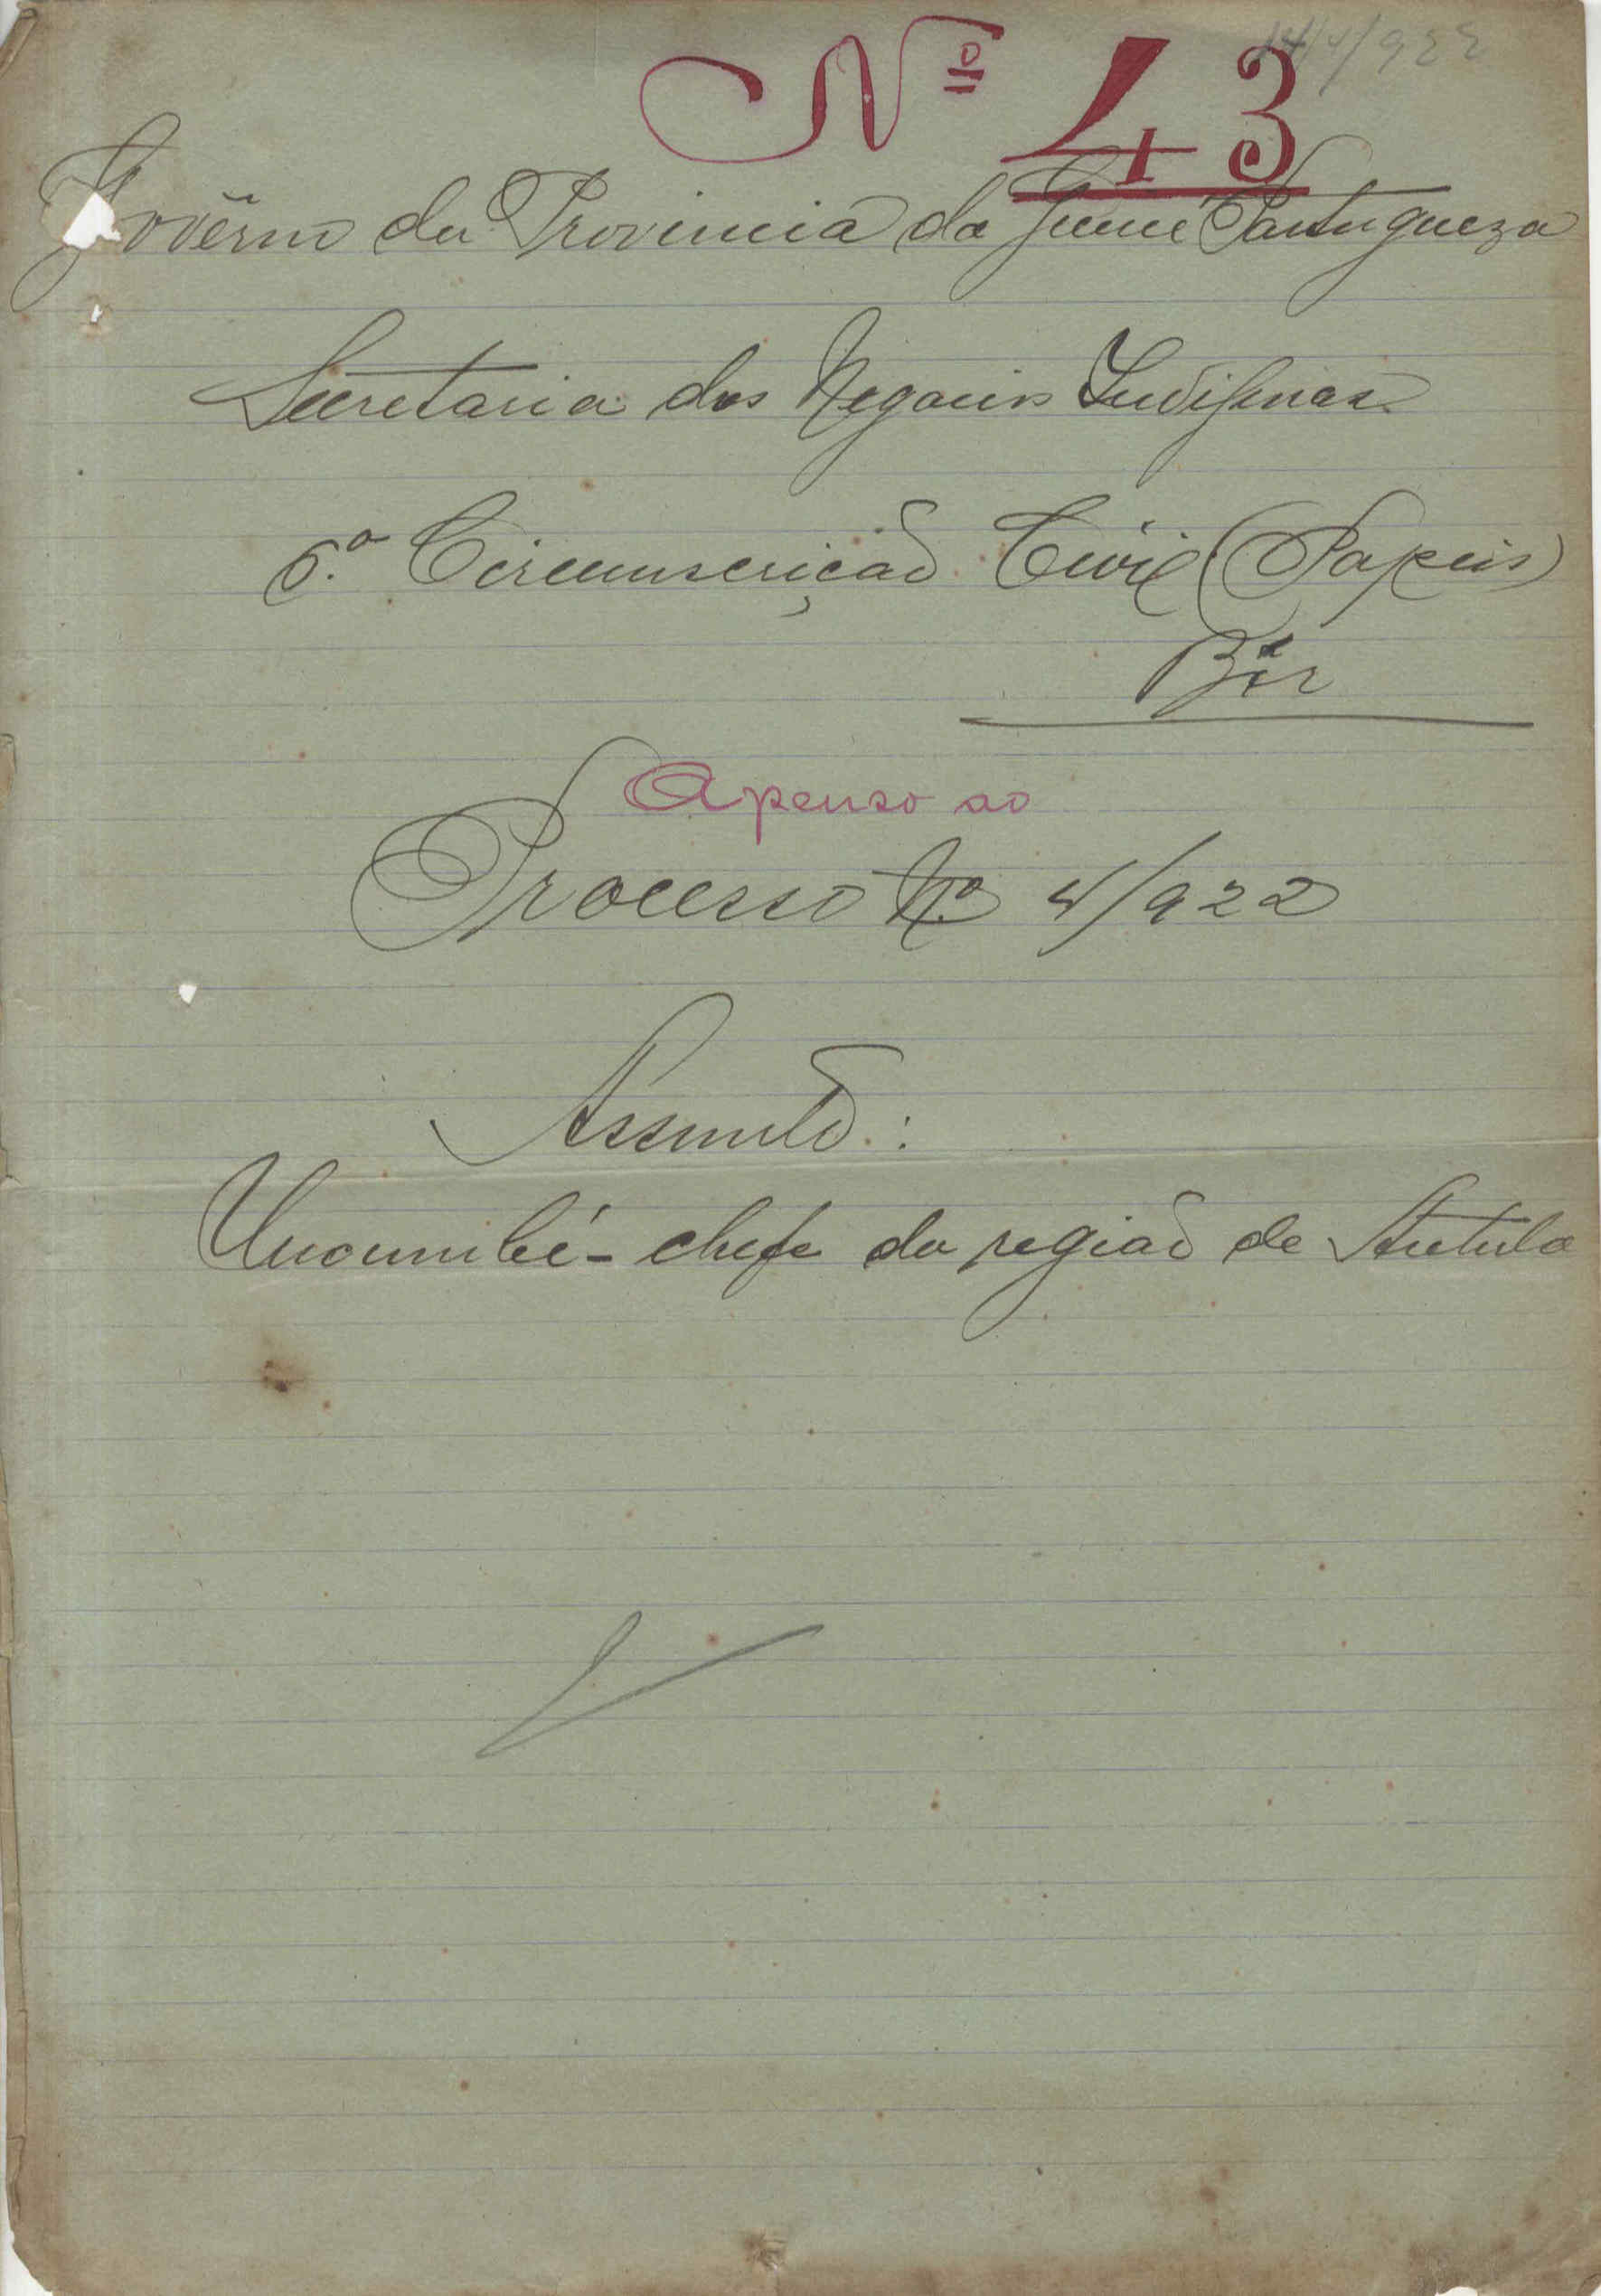 Nº 43
Govêrno da Provincia da Guiné Portugueza
Secretaria dos Negocios Indigenas
6.ª Circumscrição Civil (Papeis)
Bôr
Apenso ao
Processo Nº 4/922
Assunto:
chefe da região de Antula